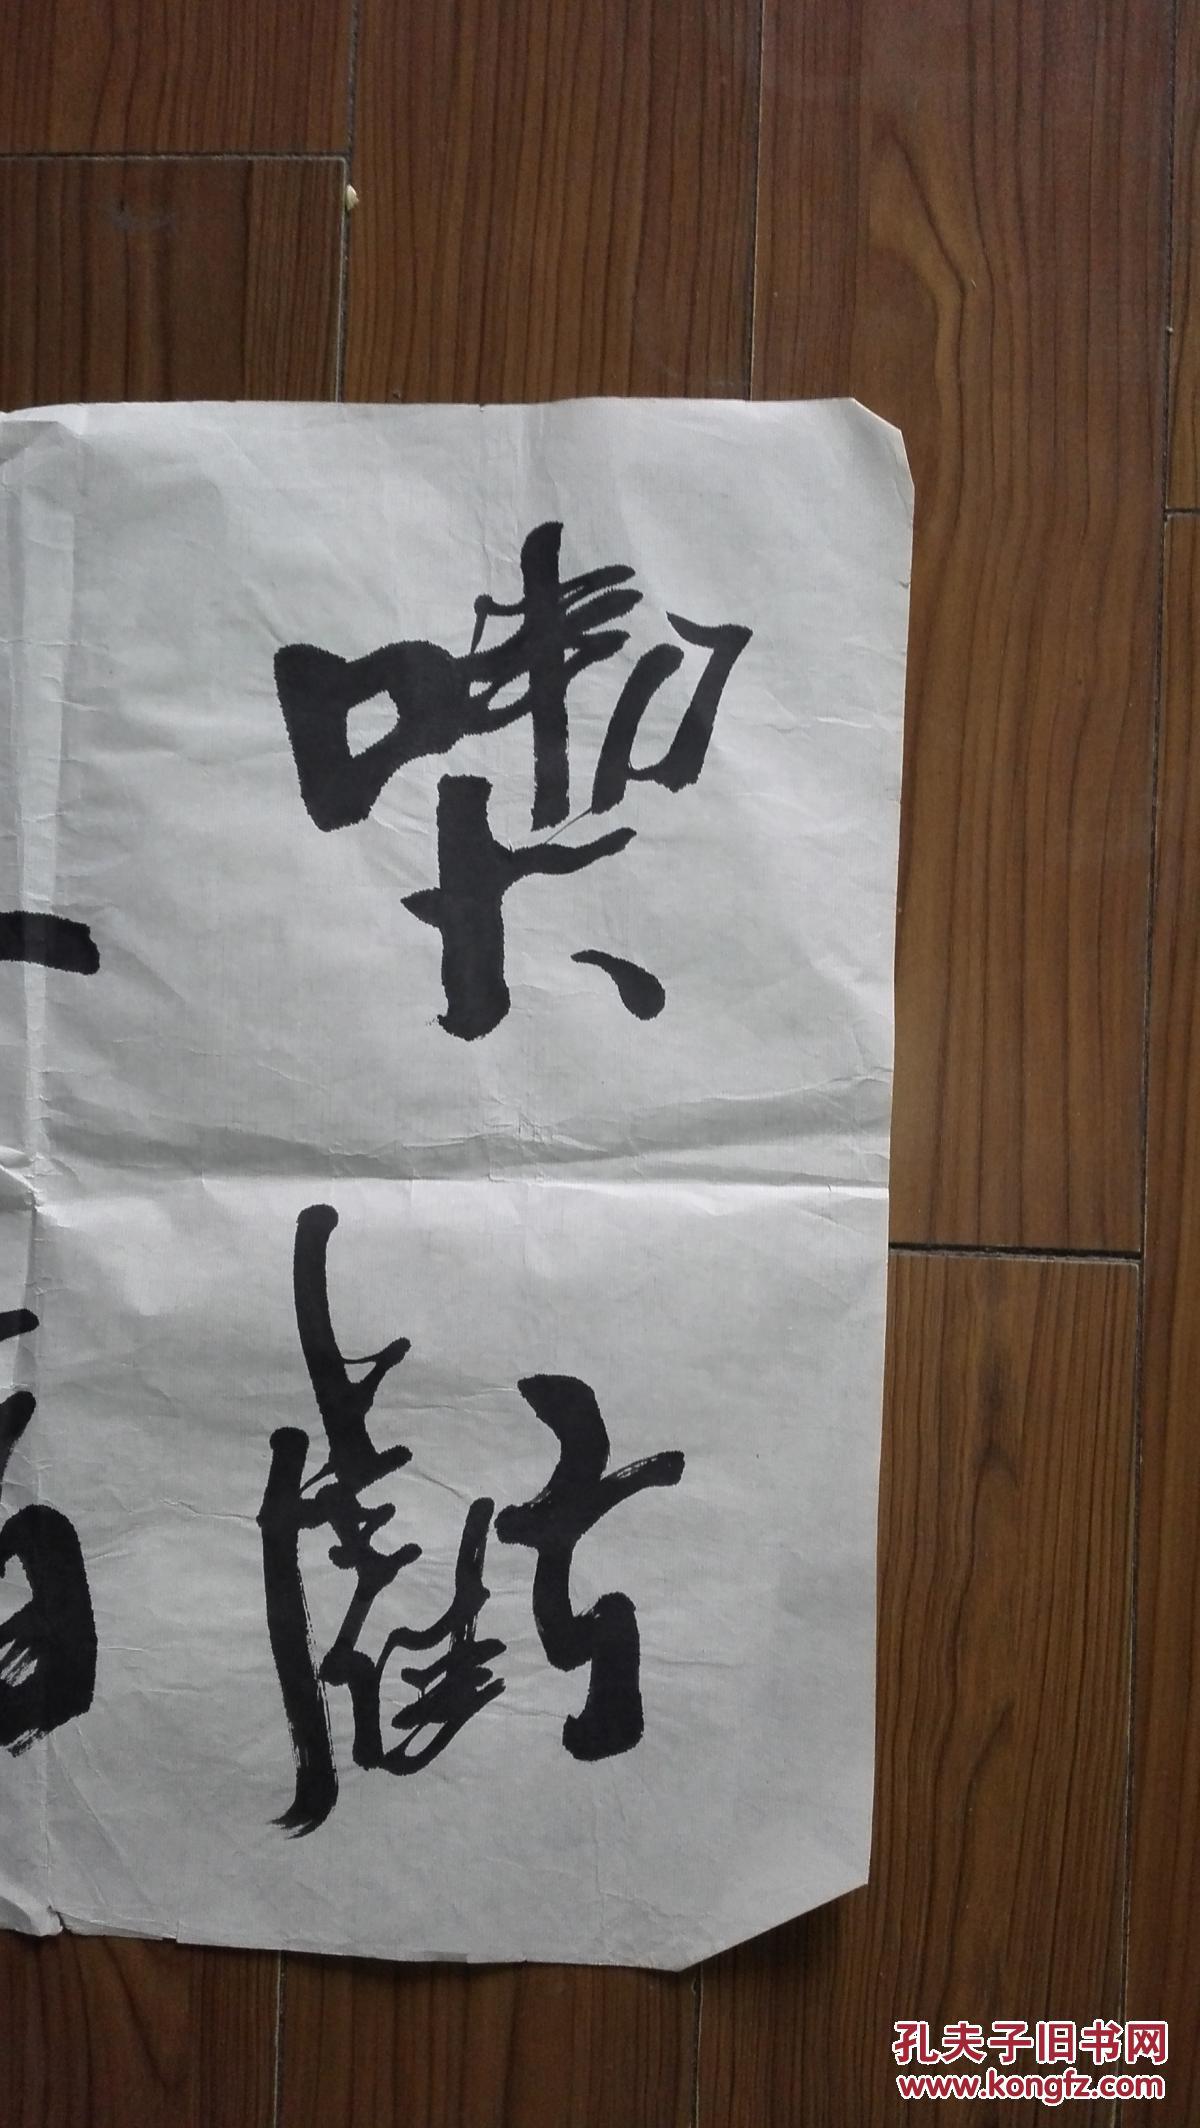 喫虧
孔夫子旧书网
www.kongfz.com